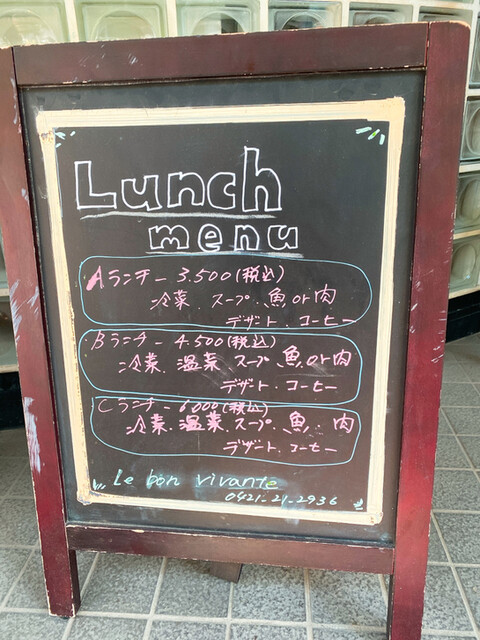 Lunch
menu
Aランチ - 3.500(税込)
冷菜.スープ.魚or肉
デザート.コーヒー
Bランチ - 4.500(税込)
冷菜.温菜 スープ 魚.or肉
デザート.コーヒー
Cランチ - 6000(税込)
冷菜.温菜.スープ.魚.肉
デザート.コーヒー
Le bon vivante
0421-21-2936